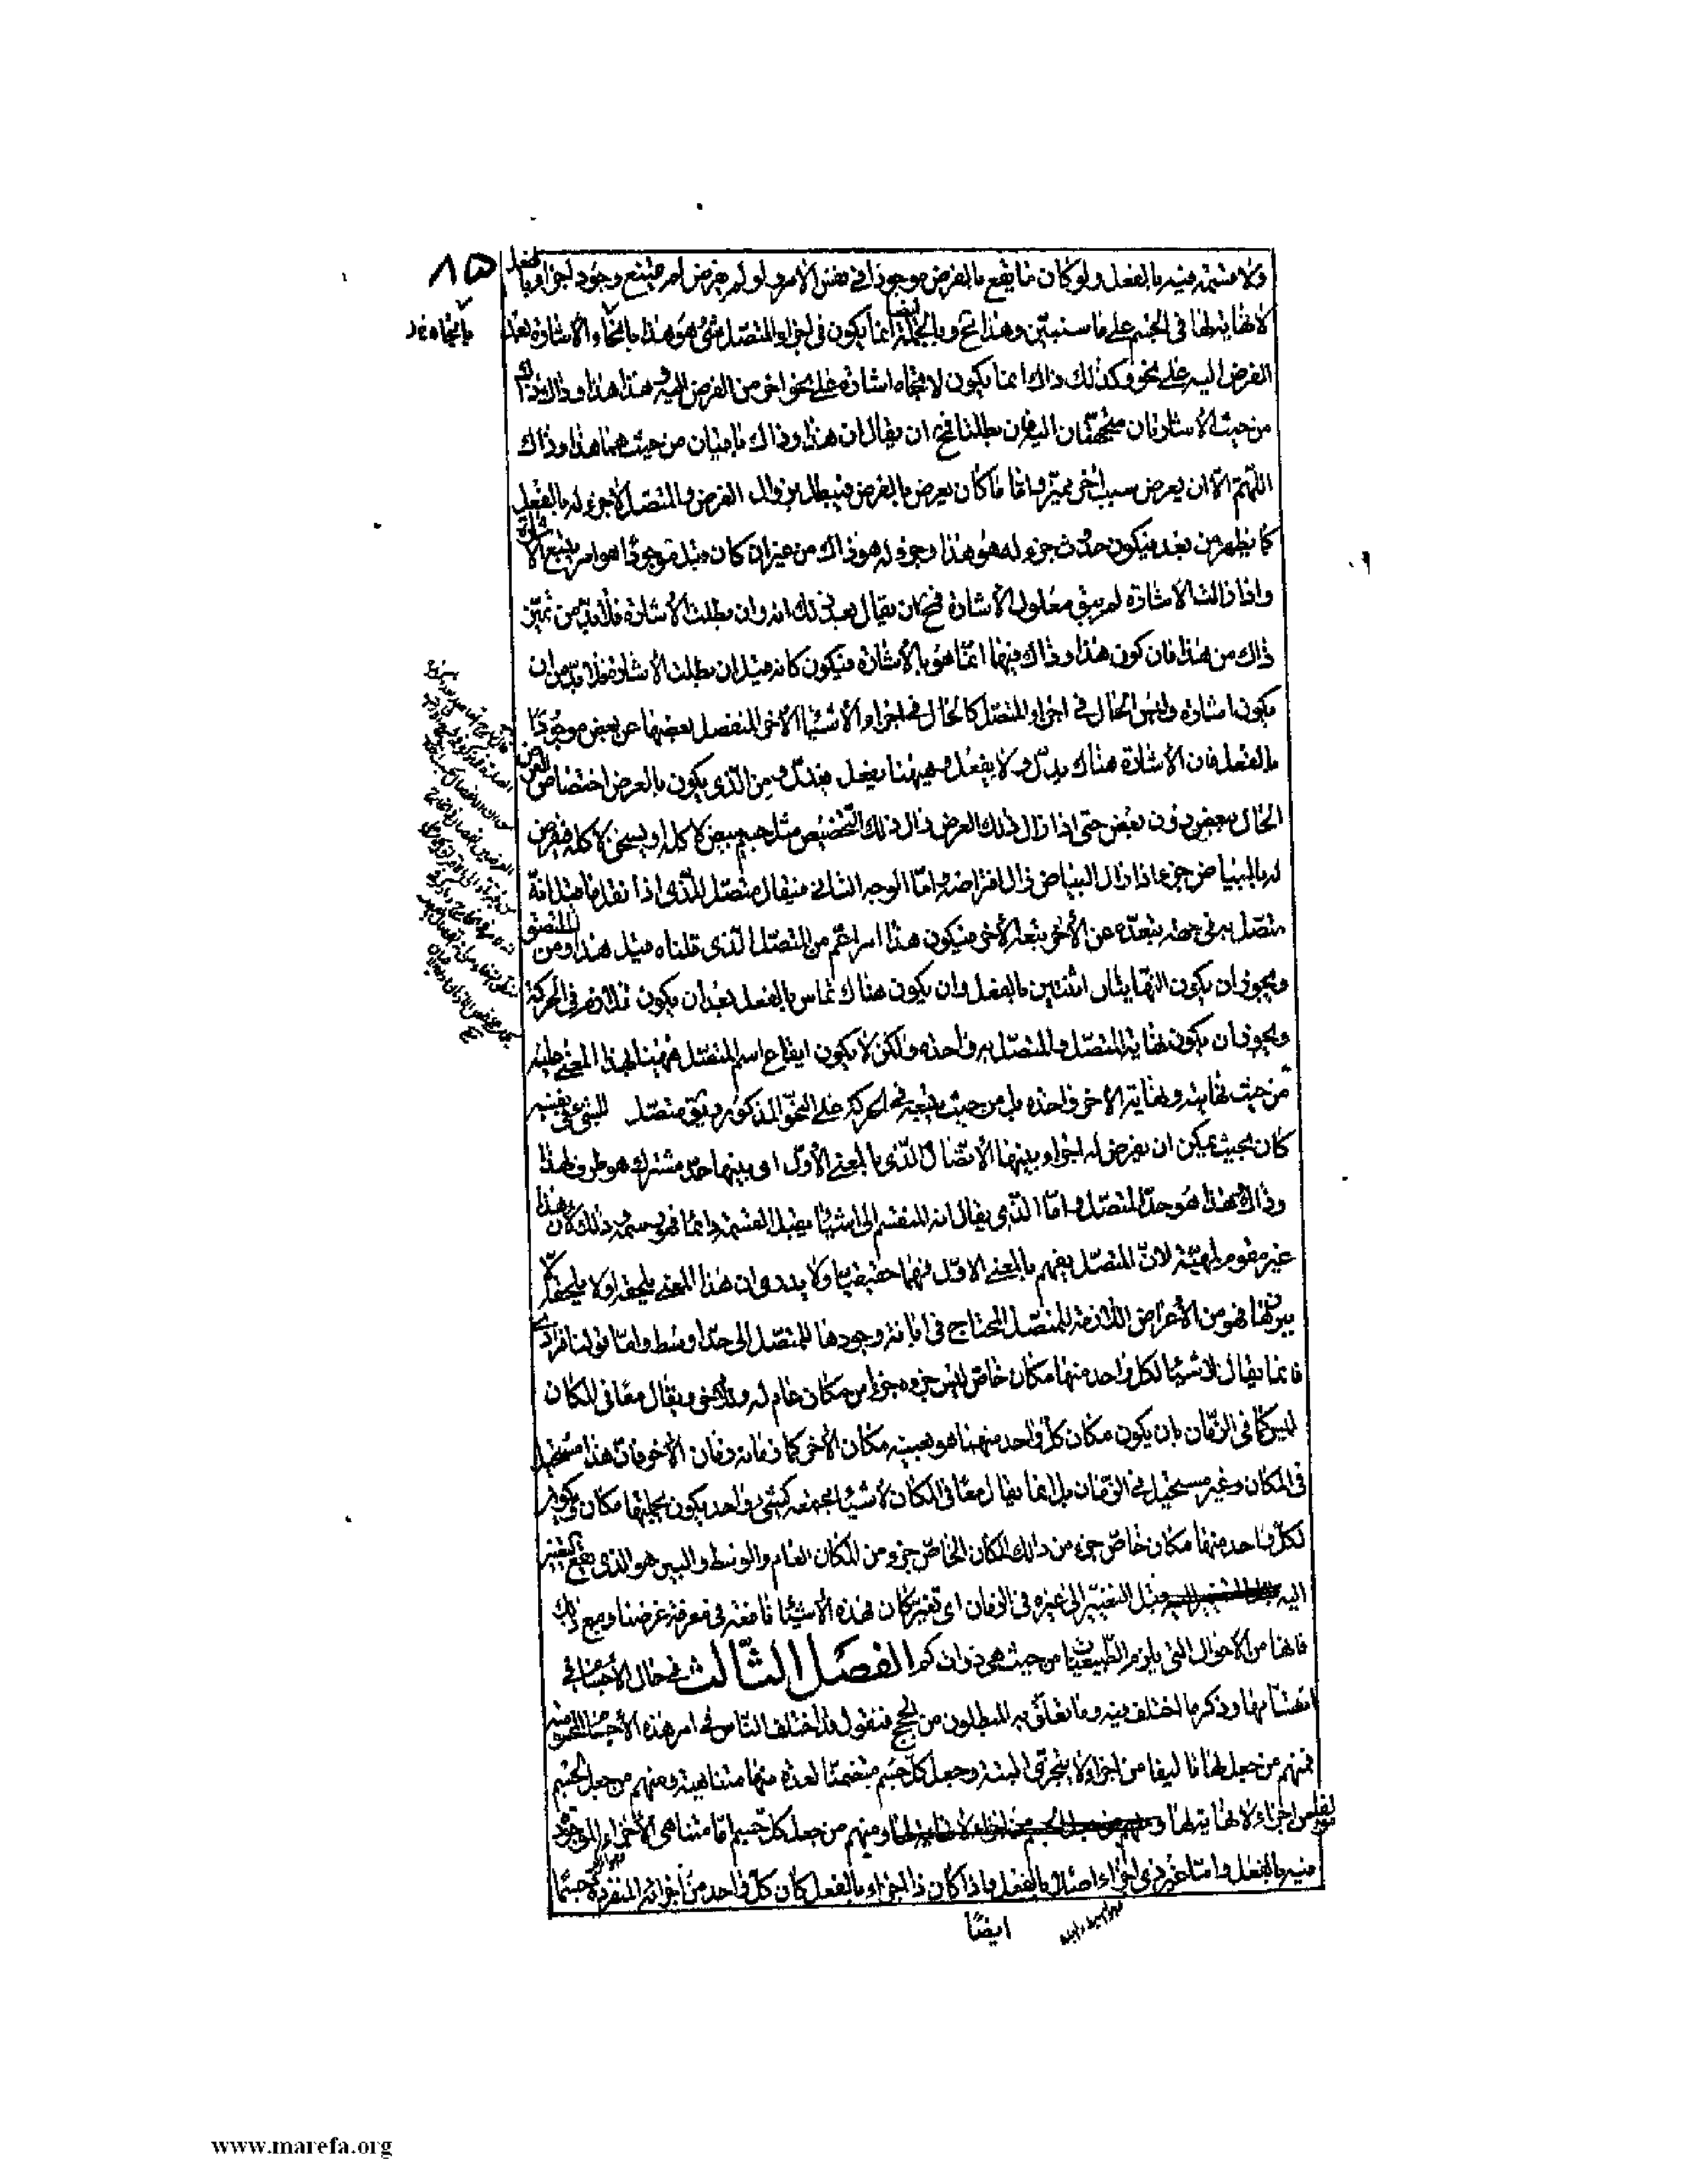 ٨٥
ولا قسمة فيه بالفعل ولو كان ما يقع بالفرض موجودا في نفس الامر ولو لم يفرض لم يمتنع وجود اجزاء بالفعل
لا نهاية لها في الجسم على ما سنبين وهذا مح وبالجملة ايضا انما يكون في اجزاء المتصل شيء هو هذا بانحاء الاشارة بعد
بانتحاء
الفرض اليه على نحو وكذلك ذاك انما يكون لانتحاء اشارة على نحو اخر من الفرض اليه وهذا هذا وذاك ذاك
من حيث الاشارتان متجهتان اليه فان بطلتا فمح ان يقال ان هذا وذاك باقيان من حيث هما هذا وذاك
اللهم الا ان يعرض سبب اخر مميز واما ما كان يعرض بالفرض فيبطل بزوال الفرض والمتصل لا جزء له بالفعل
كما يظهر من بعد فيكون حدوث جزء له هو هذا وجزء له هو ذاك من غير ان كان قبل موجودا هو امر يتبع الاشارة
واذا زالت الاشارة لم يبق معلول الاشارة فمح ان يقال بعد ذلك انه وان بطلت الاشارة فلا بد من تميز
ذاك من هذا فان كون هذا وذاك فيهما انما هو بالاشارة فيكون كانه قيل ان بطلت الاشارة فلا بد من ان
يكون اشارة وليس الحال في اجزاء المتصل كالحال في اجزاء الاشياء الاخرى المنفصل بعضها عن بعض موجودا
بالفعل فان الاشارة هناك يدل ولا يفعل وههنا يفعل فيدل ومن الذي يكون بالعرض اختصاص العرض
الحال ببعض دون بعض حتى اذا زال ذلك العرض زال ذلك التخصيص مثل جسم يبيض لا كله او يسخن لا كله فيفرض
له بالبياض جزء اذا زال البياض زال افتراضه واما الوجه الثاني فيقال متصل للذي اذا نقل ما قيل انه
متصل به في جهة يبعده عن الاخر يتبعه الاخر فيكون هذا اسم اعم من المتصل الذي قلناه قبل هذا ومن الملتصق
ويجوز ان يكون النهايتان اثنتين بالفعل وان يكون هناك تماس بالفعل بعد ان يكون تلازم في الحركة
ويجوز ان يكون نهاية المتصل والمتصل به واحدة ولكن لا يكون ايقاع اسم المتصل ههنا لهذا المعنى عليه
من حيث نهايته ونهاية الاخر واحدة بل من حيث يتبعه في الحركة على النحو المذكور ويق متصل للشيء في نفسه
كان بحيث يمكن ان يعرض له اجزاء بينها الاتصال الذي بالمعنى الاول اي بينها حد مشترك هو طرف لهذا
وذاك وهذا هو حد المتصل واما الذي يقال انه المنقسم الى اشياء يقبل القسمة دائما فهو رسمه وذلك لان هذا
غير مقوم لمهيته لان المتصل يفهم بالمعنى الاول فهما حقيقيا ولا يدري ان هذا المعنى يلحقه او لا يلحقه الا
ببرهان فهو من الاعراض اللازمة للمتصل المحتاج في ابانة وجودها للمتصل الى حد اوسط واما قولنا فرادى
فانما يقال لاشياء لكل واحد منها مكان خاص ليس جزءه جزءا من مكان عام له وللاخر ويقال معا في المكان
ليس كما في الزمان بان يكون مكان كل واحد منهما هو بعينه مكان الاخر كما زمانه زمان الاخر فان هذا مستحيل
في المكان وغير مستحيل في الزمان بل انما يقال معا في المكان لاشياء مجتمعة كشيء واحد يكون بجملتها مكان ويكون
لكل واحد منها مكان خاص جزء من ذلك المكان الخاص جزء من المكان العام والوسط والبين هو الذي يقع التغير
اليه قبل التغير الى غيره في الزمان اي تغير كان فهذه الاشياء نافعة في معرفة غرضنا ومع ذلك
فانها من الاحوال التي يلزم الطبيعيات من حيث هي ذوات كم الفصل الثالث في حال الاجسام في
انقسامها وذكر ما اختلف فيه وما تعلق به المبطلون من الحجج فنقول قد اختلف الناس في امر هذه الاجسام المحسوسة
فمنهم من جعل لها تاليفا من اجزاء لا يتجزى البتة وجعل كل جسم متضمنا لعدة منها متناهية ومنهم من جعل الجسم
مؤلفا من اجزاء لا نهاية لها ومنهم من جعل كل جسم اما متناهي الاجزاء الموجودة
فيه بالفعل واما غير ذي اجزاء اصلا بالفعل واذا كان ذا اجزاء بالفعل كان كل واحد من اجزائه المنفردة جسما
ايضا
www.marefa.org